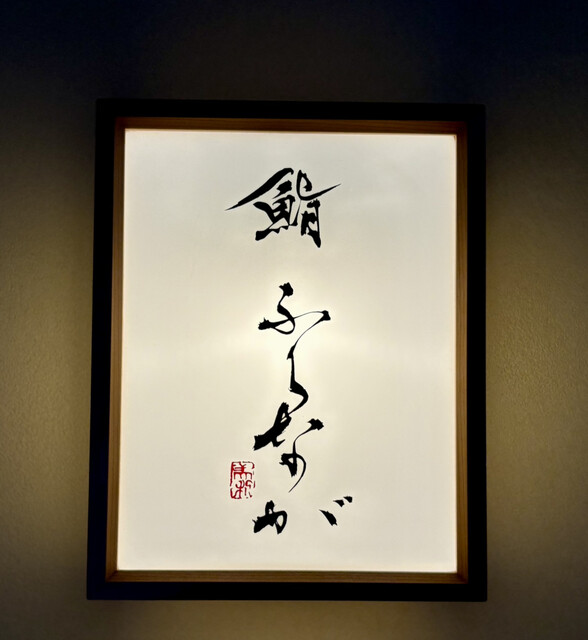 鮨 ふくなが